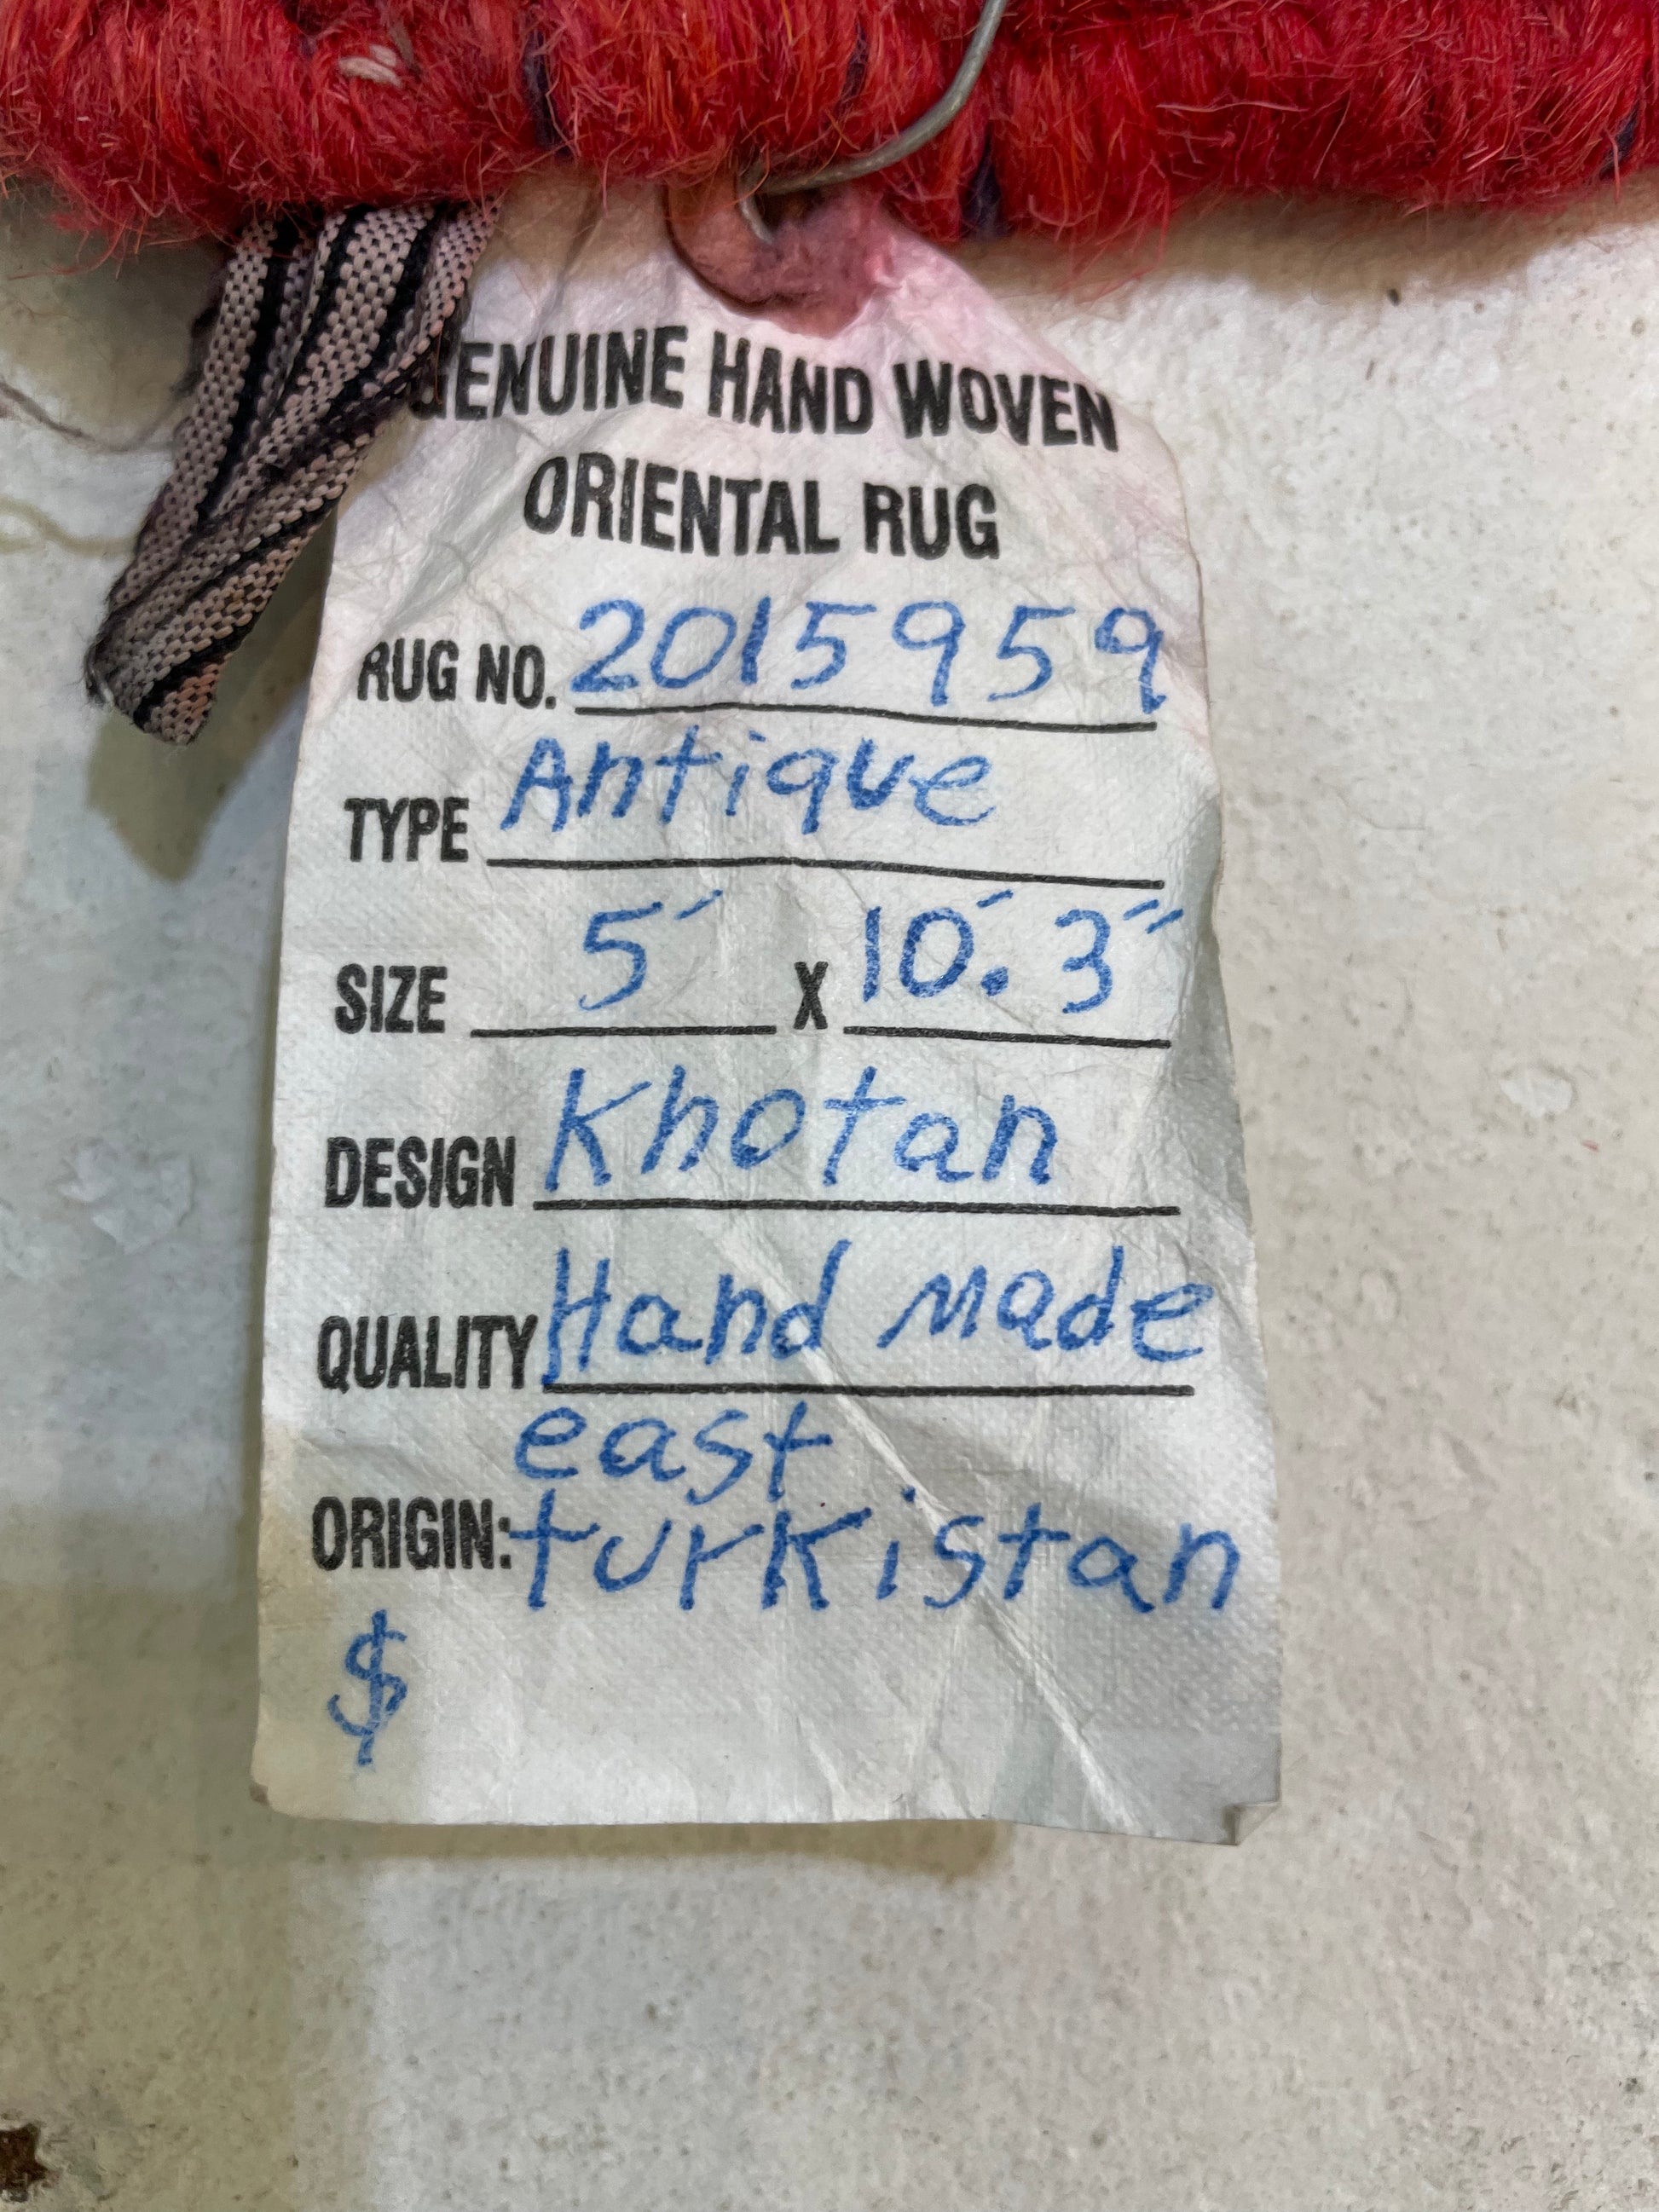 GENUINE HAND WOVEN
ORIENTAL RUG
RUG NO. 2015959
TYPE Antique
SIZE 5' x 10'. 3"
DESIGN Khotan
QUALITY Hand Made
east
ORIGIN: turkistan
$